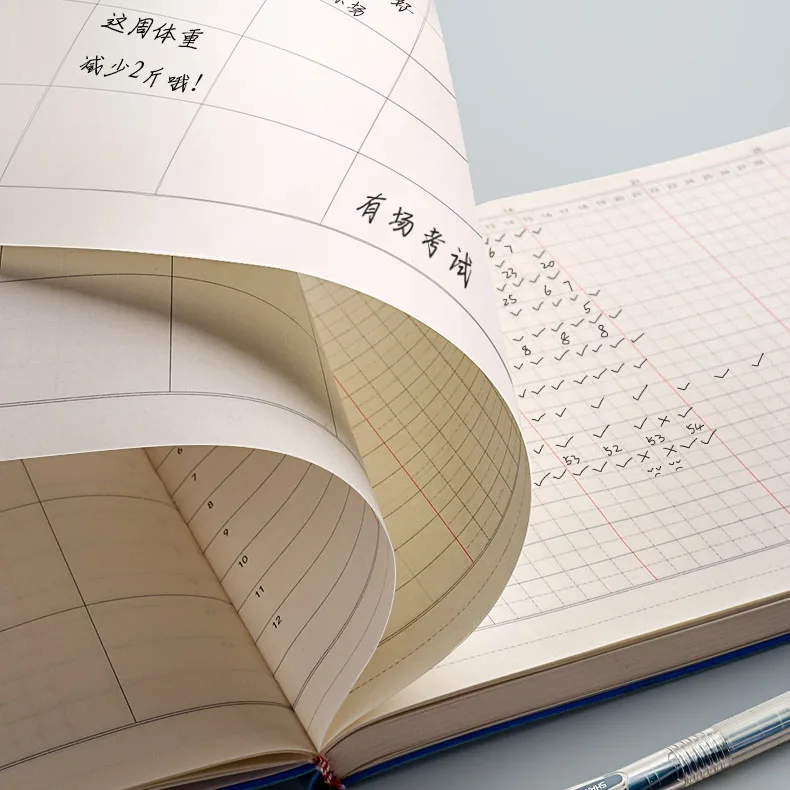 这周体重
减少2斤哦!
有场考试
6 7
23 20
25 6 7
5
8 8 8
53 52 53 54
6
7
8
9
10
11
12